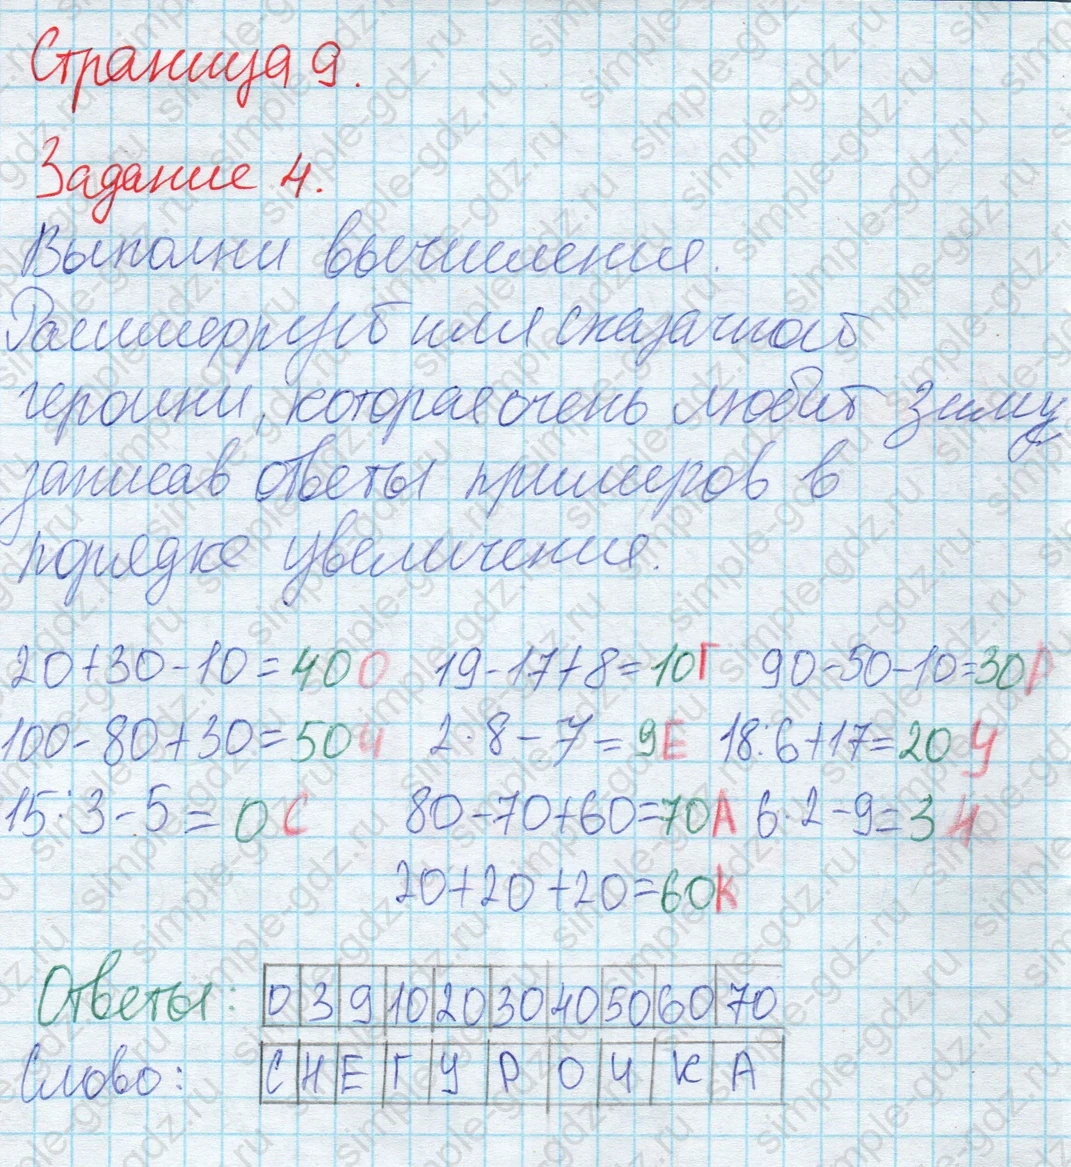 Страница 9.
Задание 4.
Выполни вычисления.
Расшифруй имя сказочной
героини, которая очень любит зиму,
записав ответы примеров в
порядке увеличения.
20+30-10=40 О 19-17+8=10 Г 90-50-10=30 Р
100-80+30=50 Ч 2·8-7=9 Е 18:6+17=20 У
15:3-5=0 С 80-70+60=70 А 6·2-9=3 Н
20+20+20=60 К
Ответы: 0 3 9 10 20 30 40 50 60 70
Слово: С Н Е Г У Р О Ч К А
simple-gdz.ru